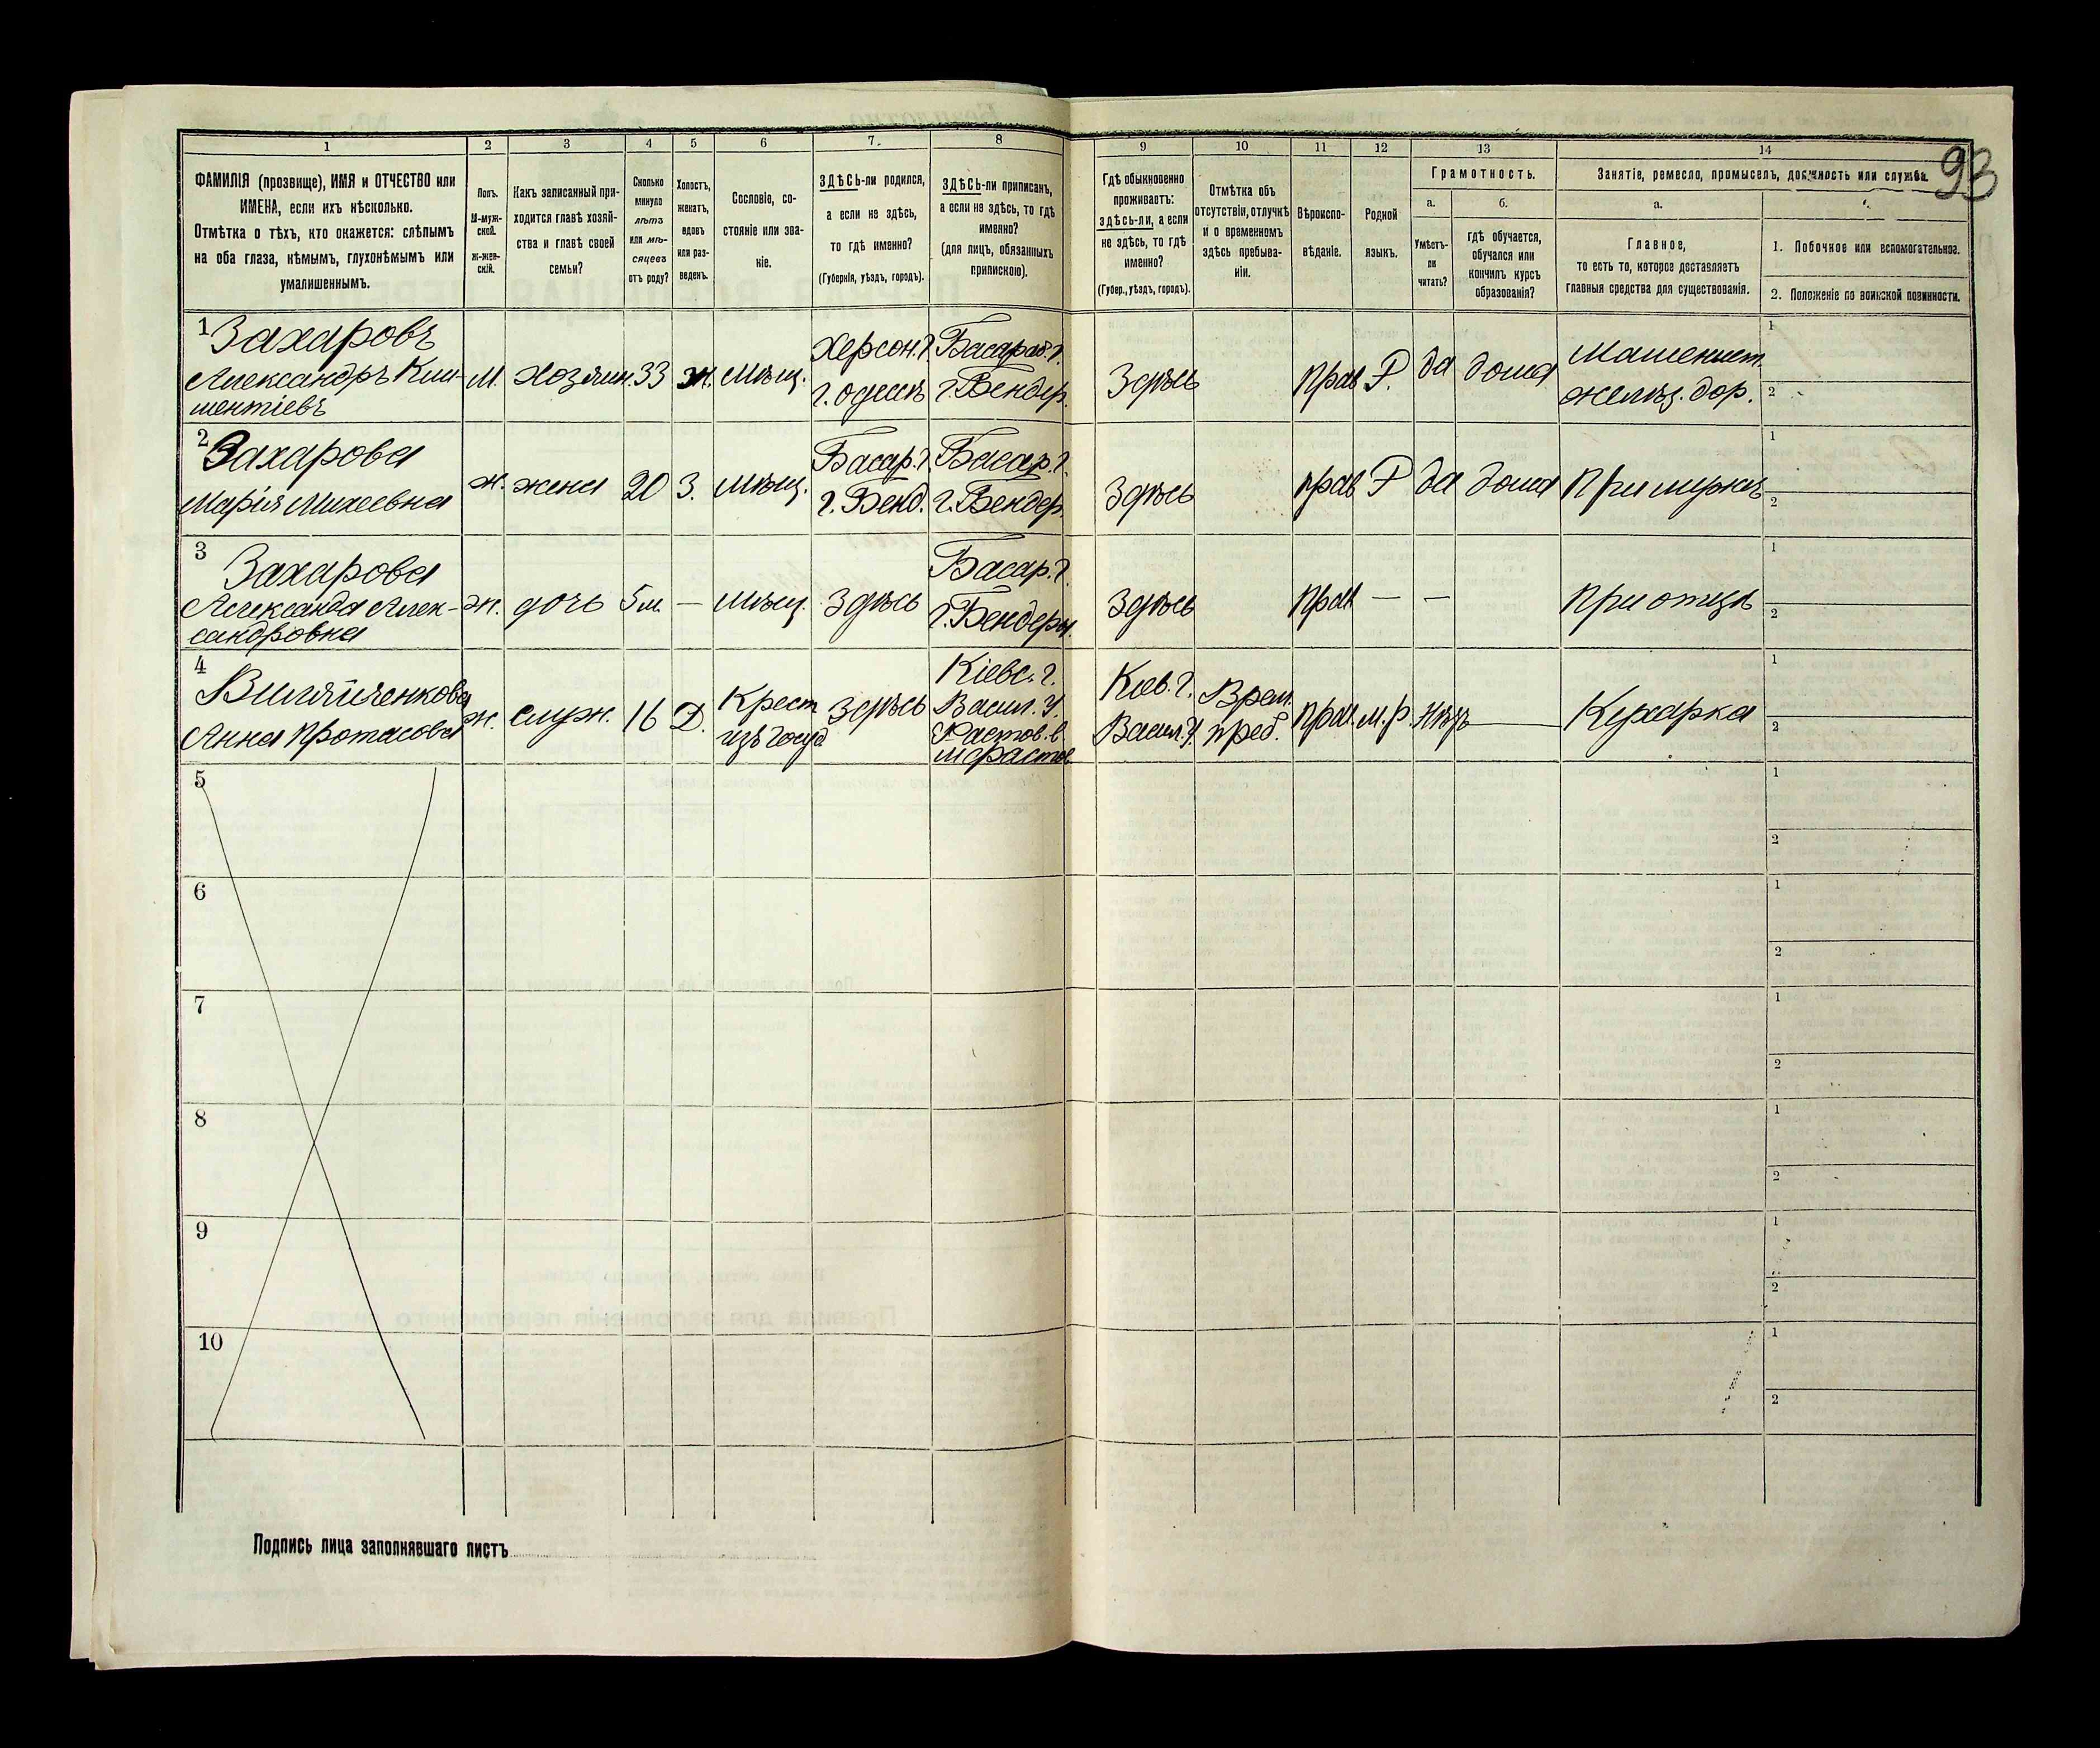 93
1
2
3
4
5
6
7.
8
9
10
11
12
13
14
ФАМИЛІЯ (прозвище), ИМЯ и ОТЧЕСТВО или
ИМЕНА, если ихъ нѣсколько.
Отмѣтка о тѣхъ, кто окажется: слѣпымъ
на оба глаза, нѣмымъ, глухонѣмымъ или
умалишеннымъ.
Полъ.
М-муж-
ской.
Ж-жен-
скій.
Какъ записанный при-
ходится главѣ хозяй-
ства и главѣ своей
семьи?
Сколько
минуло
лѣтъ
или мѣ-
сяцевъ
отъ роду?
Холостъ,
женатъ,
вдовъ
или раз-
веденъ.
Сословіе, со-
стояніе или зва-
ніе.
ЗДѢСЬ-ли родился,
а если не здѣсь,
то гдѣ именно?
(Губернія, уѣздъ, городъ).
ЗДѢСЬ-ли приписанъ,
а если не здѣсь, то гдѣ
именно?
(для лицъ, обязанныхъ
припискою).
Гдѣ обыкновенно
проживаетъ:
здѣсь-ли, а если
не здѣсь, то гдѣ
именно?
(Губер., уѣздъ, городъ).
Отмѣтка объ
отсутствіи, отлучкѣ
и о временномъ
здѣсь пребыва-
ніи.
Вѣроиспо-
вѣданіе.
Родной
языкъ.
Грамотность.
а.
Умѣетъ-
ли
читать?
б.
гдѣ обучается,
обучался или
кончилъ курсъ
образованія?
Занятіе, ремесло, промыселъ, должность или служба.
а.
Главное,
то есть то, которое доставляетъ
главныя средства для существованія.
1. Побочное или вспомогательное.
2. Положеніе по воинской повинности.
1
Захаровъ
Александръ Кли-
ментіевъ
м.
хозяин.
33
ж.
Мѣщ.
Херсон. г.
г. Одессѣ
Басараб. г.
г. Бендер.
Здѣсь
прав
Р.
да
дома
Машенист
желѣз. дор.
1
2
2
Захарова
Марія Михеевна
ж.
жена
20
З.
мѣщ.
Басар. г.
г. Бенд.
Басар. г.
г. Бендер.
Здѣсь
прав
Р
да
дома
При мужѣ
1
2
3
Захарова
Александа Алек-
сандровна
ж.
дочь
5 м.
—
мѣщ.
Здѣсь
Басар. г.
г. Бендеры.
Здѣсь
прав
—
—
при отцѣ
1
2
4
Анна Протасова
ж.
служ.
16
Д.
Крест
изъ госуд
Здѣсь
Кіевс. г.
Васил. у.
Фастов. в.
м Фастов
Кіев. г.
Васил. у.
Врем.
преб.
прав.
м. р.
нѣтъ
Кухарка
1
2
5
1
2
6
1
2
7
1
2
8
1
2
9
1
2
10
1
2
Подпись лица заполнявшаго листъ